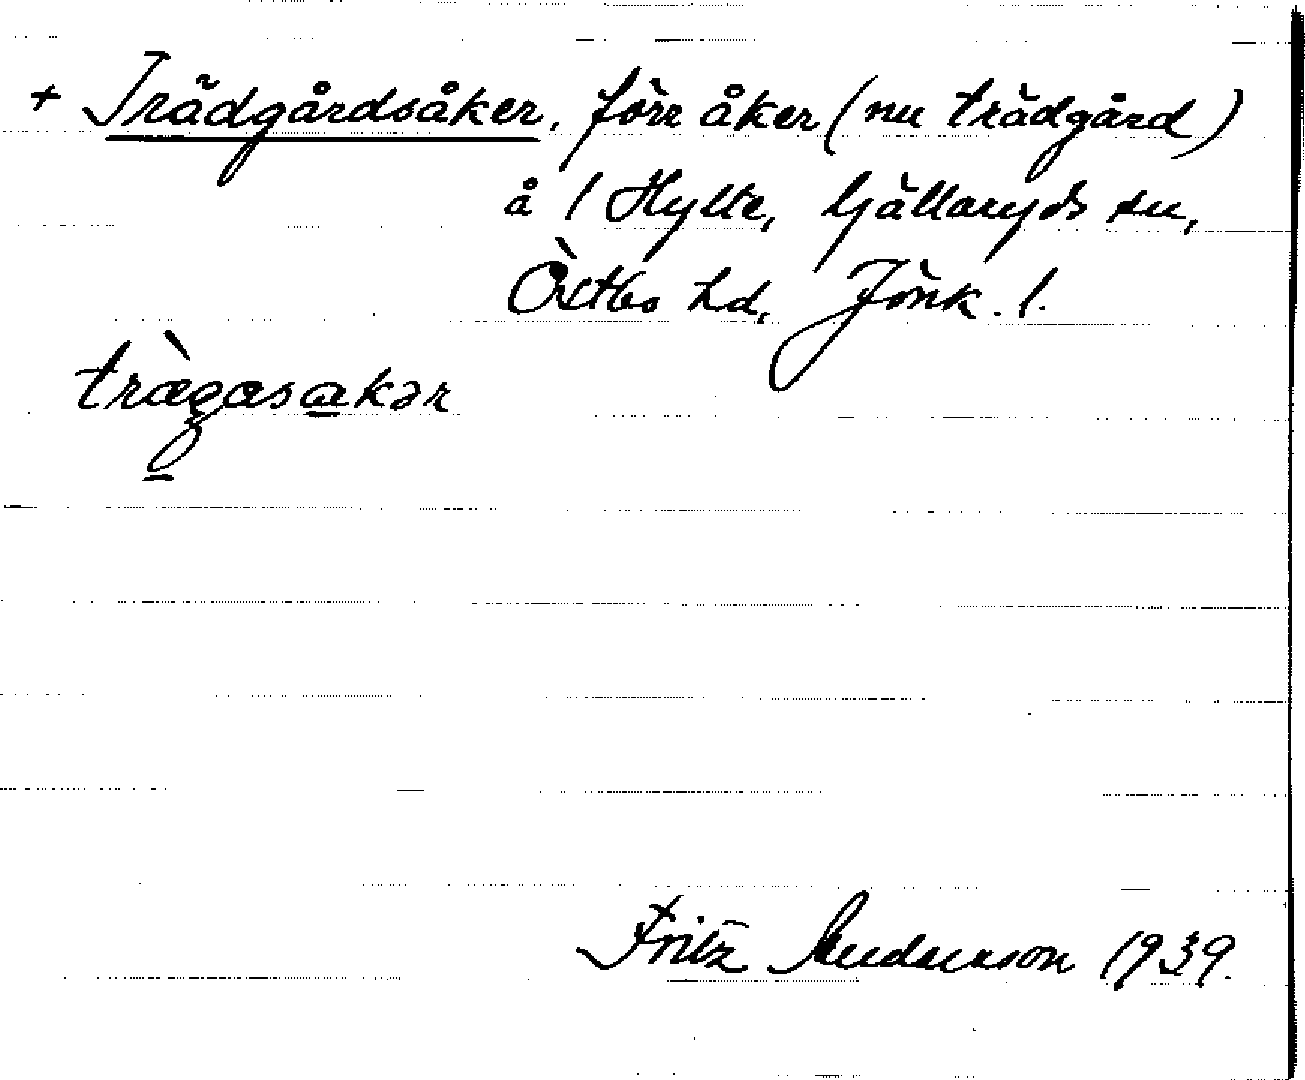 + Trädgårdsåker, förr åker (nu trädgård)
å 1 Hylte, Gällaryds sn,
Östbo hd, Jönk. l.
trægasakər
Fritz Andersson 1939.